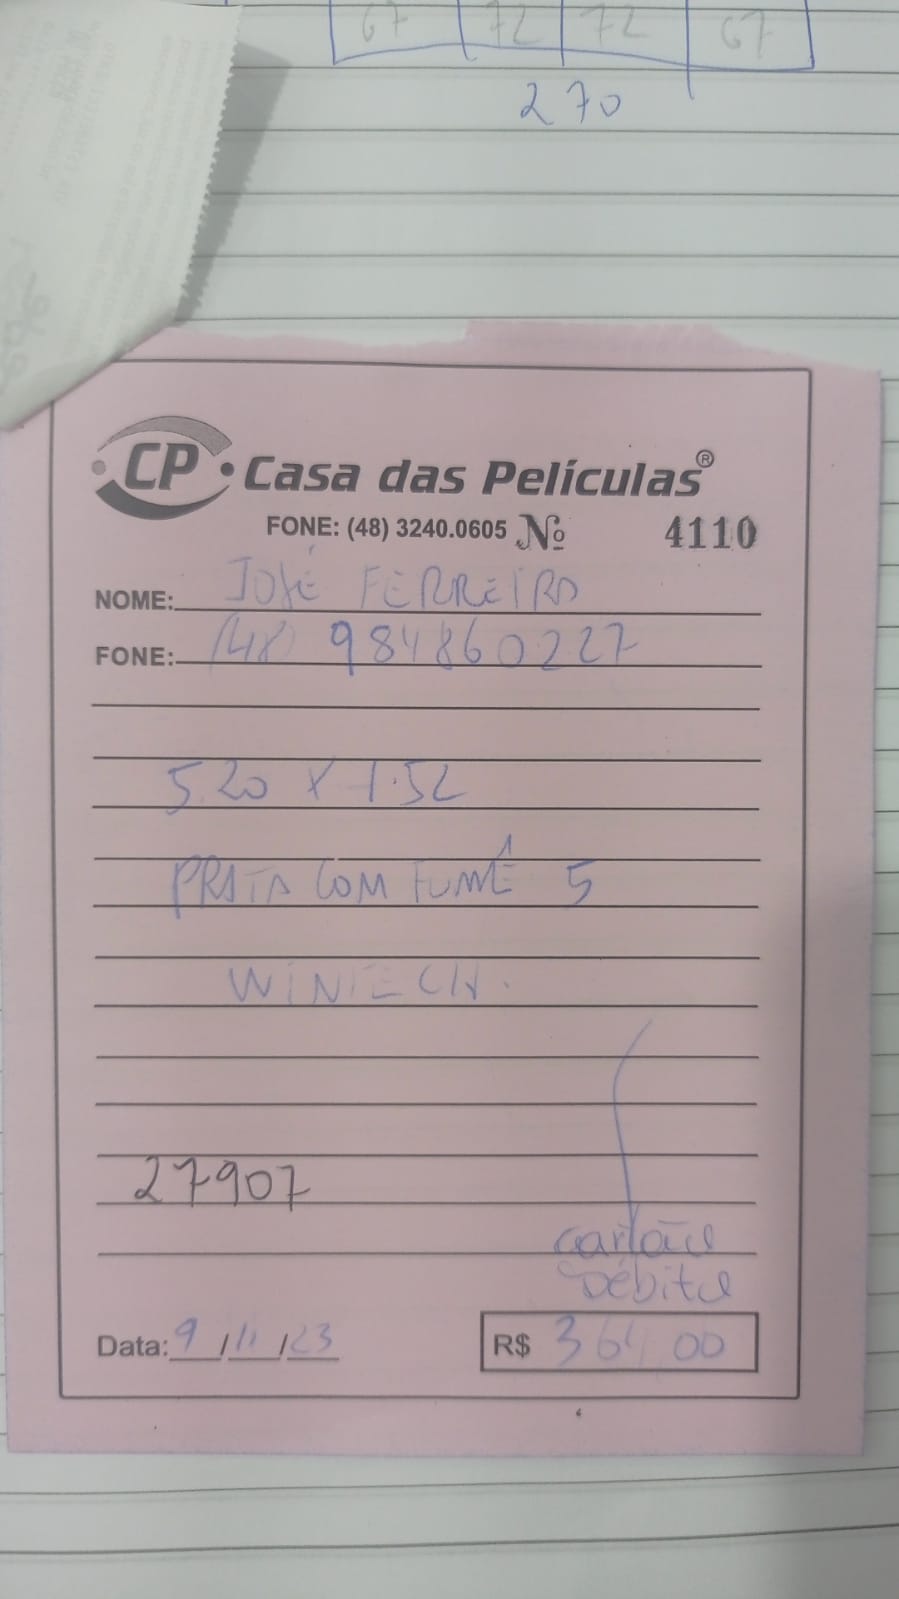 67 72 72 67
270
CP Casa das Películas®
FONE: (48) 3240.0605 Nº 4110
NOME: JOSÉ FERREIRA
FONE: (48) 984860227
5.20 x 1.52
PRATA COM FUMÊ 5
WINTECH.
27907
cartão
Débito
Data: 9/11/23 R$ 364,00